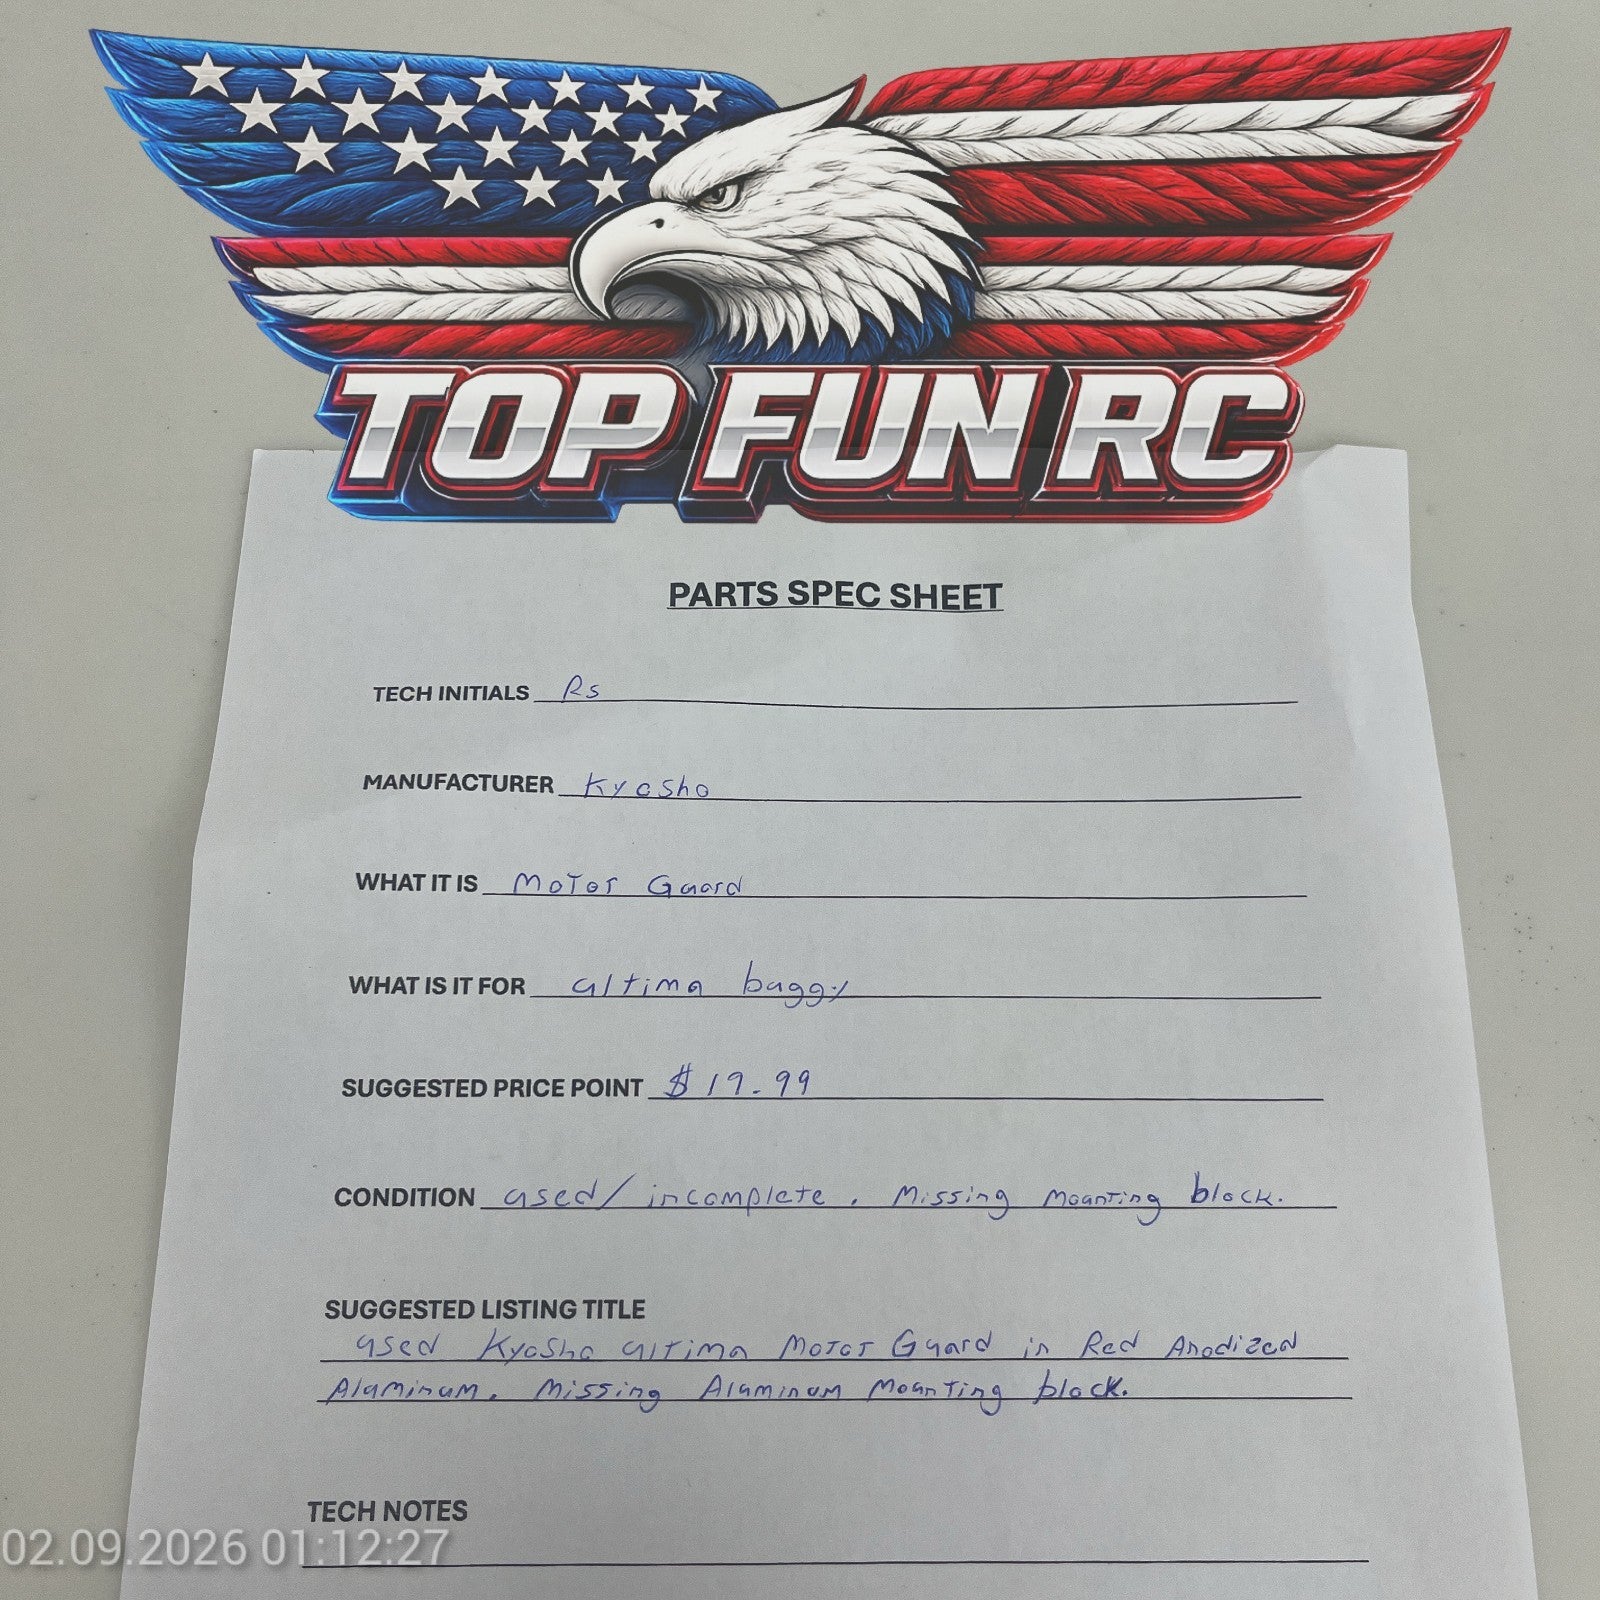 TOP FUN RC
PARTS SPEC SHEET
TECH INITIALS Rs
MANUFACTURER Kyosho
WHAT IT IS Motor Guard
WHAT IS IT FOR ultima buggy
SUGGESTED PRICE POINT $19.99
CONDITION used/incomplete. Missing mounting block.
SUGGESTED LISTING TITLE
used Kyosho ultima Motor Guard in Red Anodized
Aluminum. Missing Aluminum mounting block.
TECH NOTES
02.09.2026 01:12:27